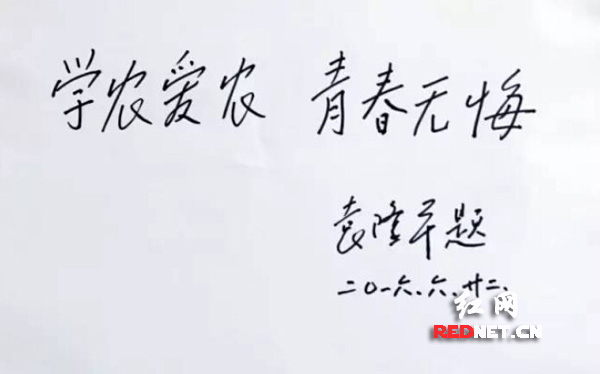 学农爱农 青春无悔
袁隆平题
二〇一六.六.廿二.
红网
REDNET.CN